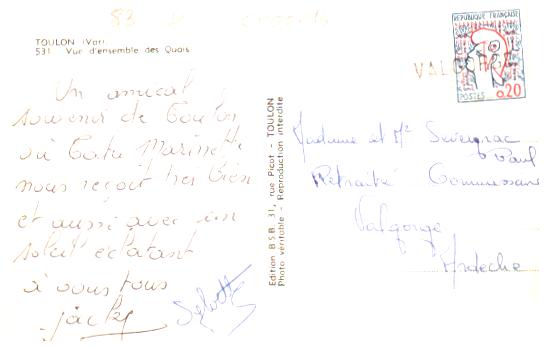 83
TOULON (Var)
531 Vue d'ensemble des Quais
Un amical
souvenir de Toulon
où Tata Marinette
nous reçoit très bien
et aussi avec un
soleil éclatant
à vous tous
Jacky
Edition BSB. 31, rue Picot - TOULON
Photo véritable - Reproduction interdite
REPUBLIQUE FRANÇAISE
POSTES 0,20
VALGORGE
Madame et Mr
Paul
Retraité
Valgorge
Ardèche